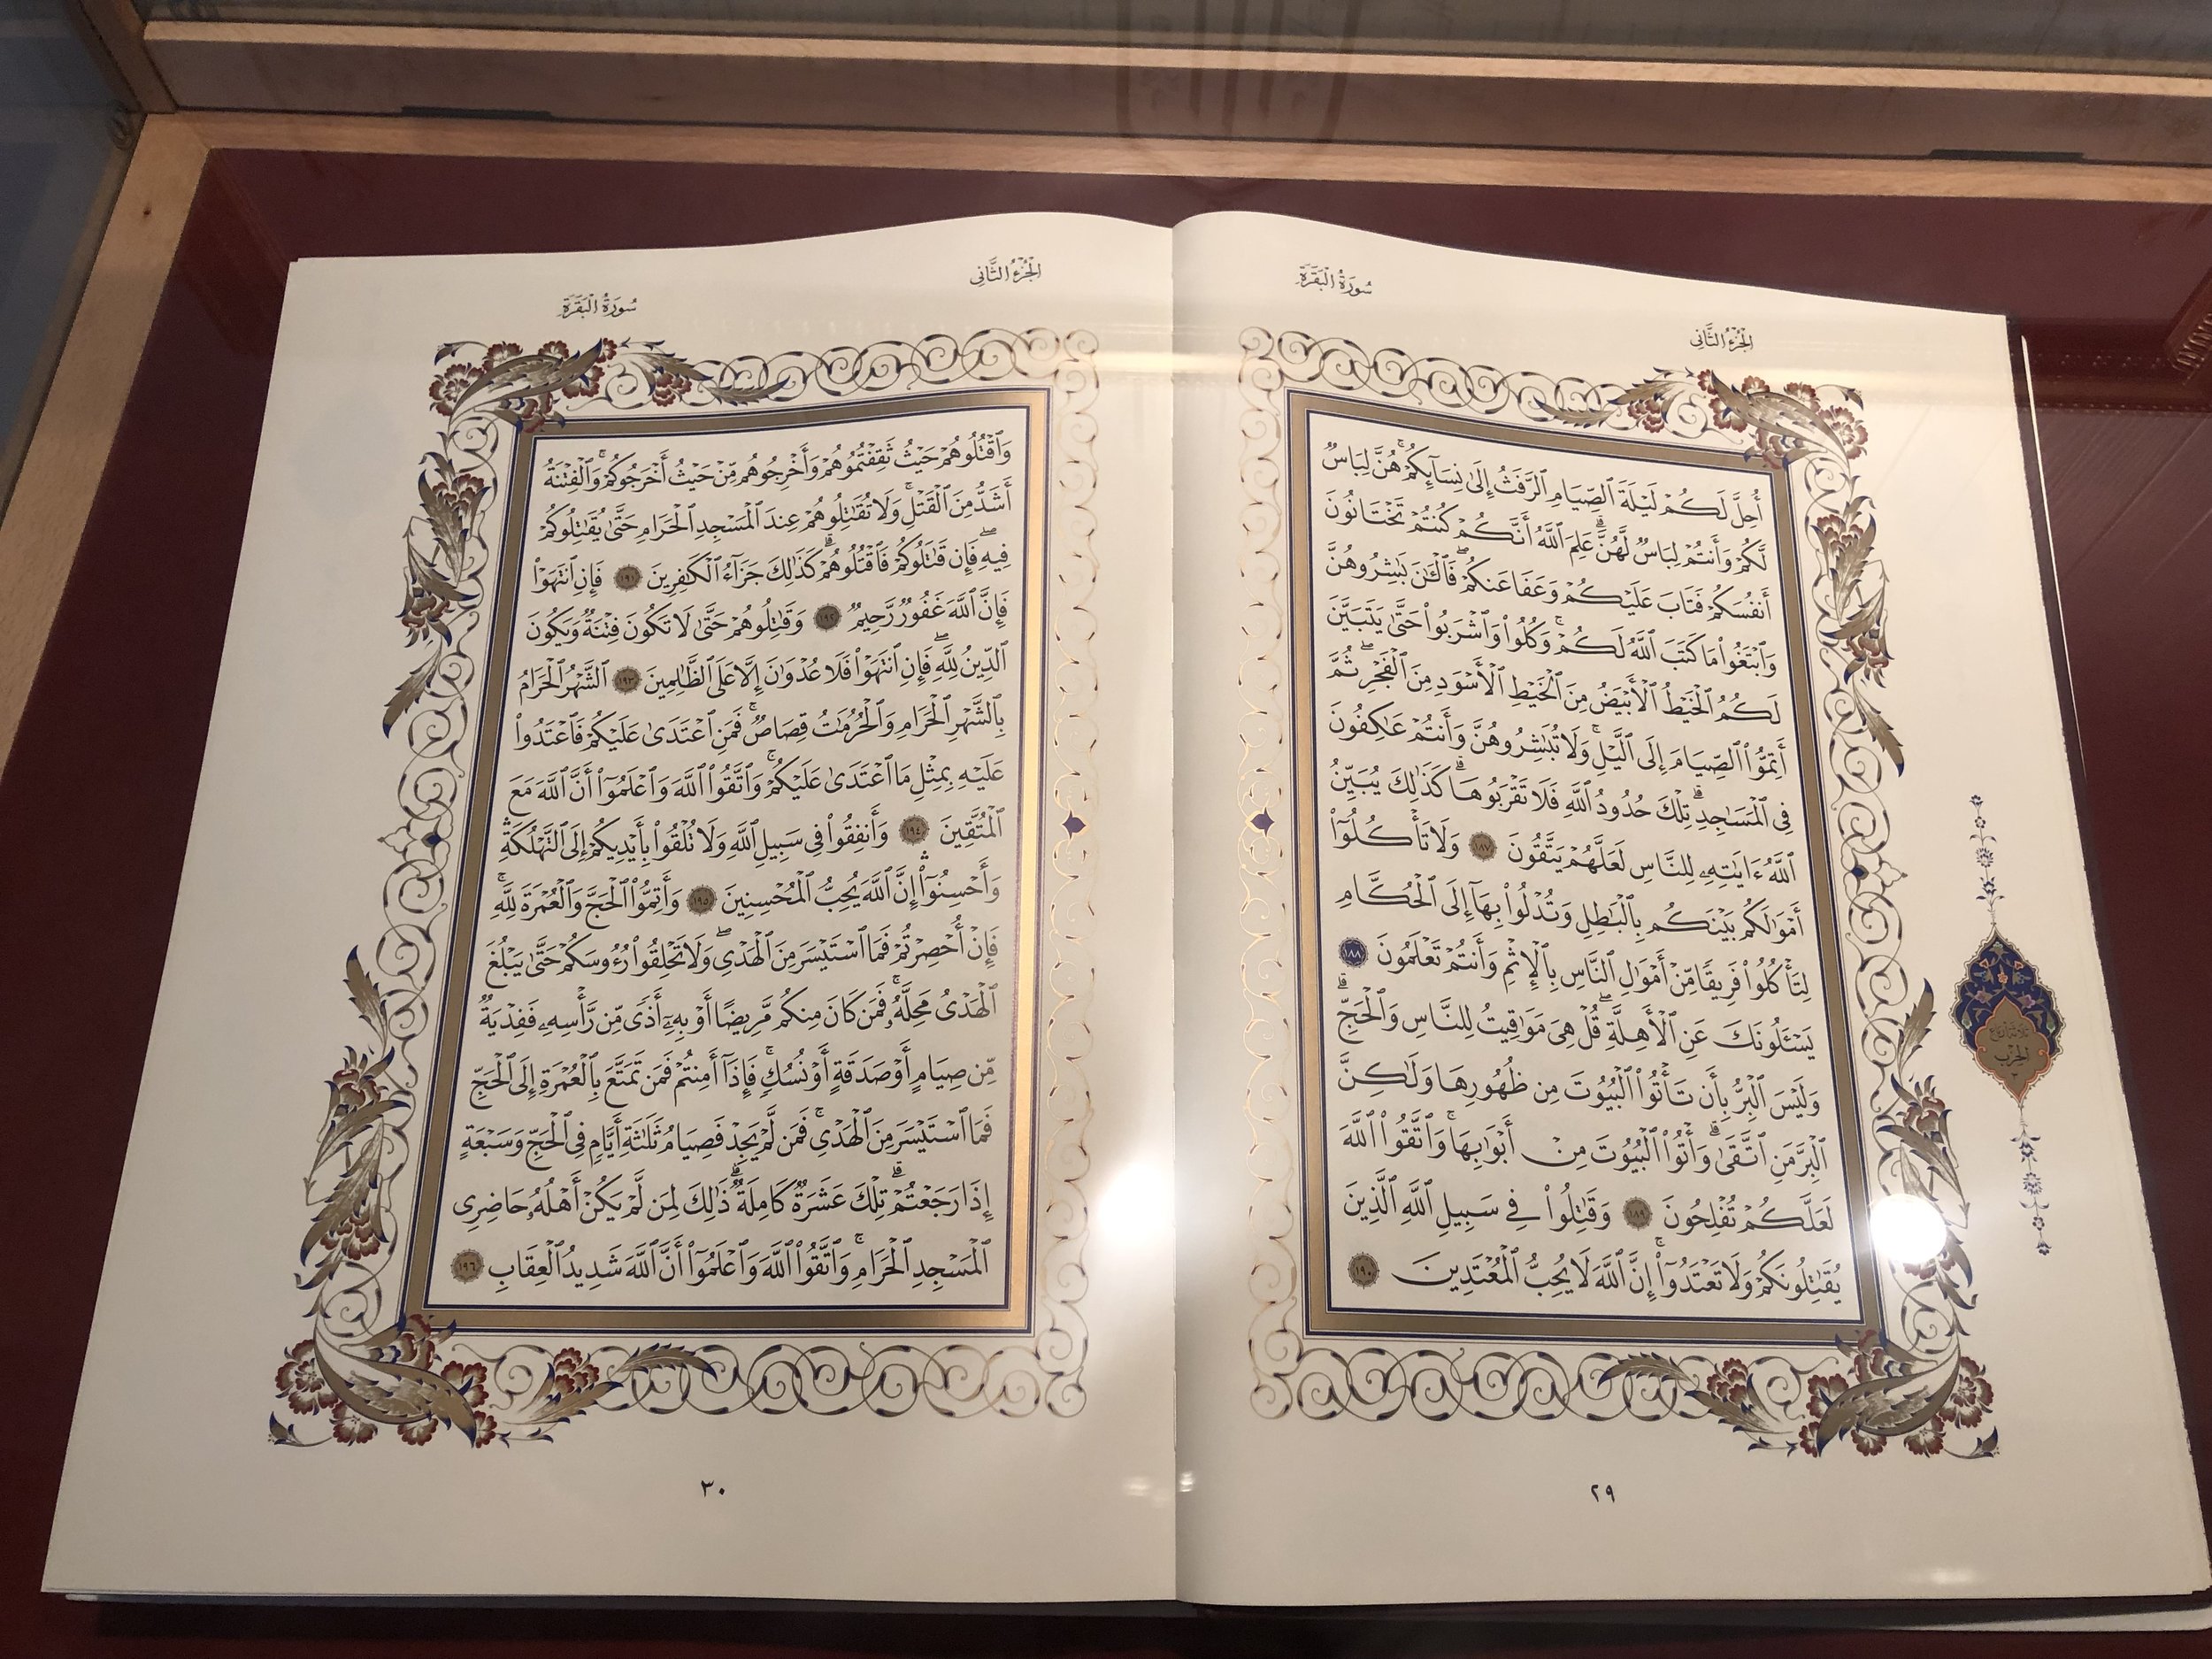 سُورَةُ الْبَقَرَةِ
الْجُزْءُ الثَّانِي
أُحِلَّ لَكُمْ لَيْلَةَ ٱلصِّيَامِ ٱلرَّفَثُ إِلَىٰ نِسَآئِكُمْ ۚ هُنَّ لِبَاسٌ
لَّكُمْ وَأَنتُمْ لِبَاسٌ لَّهُنَّ ۗ عَلِمَ ٱللَّهُ أَنَّكُمْ كُنتُمْ تَخْتَانُونَ
أَنفُسَكُمْ فَتَابَ عَلَيْكُمْ وَعَفَا عَنكُمْ ۖ فَٱلْـَٰٔنَ بَٰشِرُوهُنَّ
وَٱبْتَغُوا۟ مَا كَتَبَ ٱللَّهُ لَكُمْ ۚ وَكُلُوا۟ وَٱشْرَبُوا۟ حَتَّىٰ يَتَبَيَّنَ
لَكُمُ ٱلْخَيْطُ ٱلْأَبْيَضُ مِنَ ٱلْخَيْطِ ٱلْأَسْوَدِ مِنَ ٱلْفَجْرِ ۖ ثُمَّ
أَتِمُّوا۟ ٱلصِّيَامَ إِلَى ٱلَّيْلِ ۚ وَلَا تُبَٰشِرُوهُنَّ وَأَنتُمْ عَٰكِفُونَ
فِى ٱلْمَسَٰجِدِ ۗ تِلْكَ حُدُودُ ٱللَّهِ فَلَا تَقْرَبُوهَا ۗ كَذَٰلِكَ يُبَيِّنُ
ٱللَّهُ ءَايَٰتِهِۦ لِلنَّاسِ لَعَلَّهُمْ يَتَّقُونَ ١٨٧ وَلَا تَأْكُلُوٓا۟
أَمْوَٰلَكُم بَيْنَكُم بِٱلْبَٰطِلِ وَتُدْلُوا۟ بِهَآ إِلَى ٱلْحُكَّامِ
لِتَأْكُلُوا۟ فَرِيقًا مِّنْ أَمْوَٰلِ ٱلنَّاسِ بِٱلْإِثْمِ وَأَنتُمْ تَعْلَمُونَ ١٨٨
يَسْـَٔلُونَكَ عَنِ ٱلْأَهِلَّةِ ۖ قُلْ هِىَ مَوَٰقِيتُ لِلنَّاسِ وَٱلْحَجِّ ۗ
وَلَيْسَ ٱلْبِرُّ بِأَن تَأْتُوا۟ ٱلْبُيُوتَ مِن ظُهُورِهَا وَلَٰكِنَّ
ٱلْبِرَّ مَنِ ٱتَّقَىٰ ۗ وَأْتُوا۟ ٱلْبُيُوتَ مِنْ أَبْوَٰبِهَا ۚ وَٱتَّقُوا۟ ٱللَّهَ
لَعَلَّكُمْ تُفْلِحُونَ ١٨٩ وَقَٰتِلُوا۟ فِى سَبِيلِ ٱللَّهِ ٱلَّذِينَ
يُقَٰتِلُونَكُمْ وَلَا تَعْتَدُوٓا۟ ۚ إِنَّ ٱللَّهَ لَا يُحِبُّ ٱلْمُعْتَدِينَ ١٩٠
الحزب
٢٩
سُورَةُ الْبَقَرَةِ
الْجُزْءُ الثَّانِي
وَٱقْتُلُوهُمْ حَيْثُ ثَقِفْتُمُوهُمْ وَأَخْرِجُوهُم مِّنْ حَيْثُ أَخْرَجُوكُمْ ۚ وَٱلْفِتْنَةُ
أَشَدُّ مِنَ ٱلْقَتْلِ ۚ وَلَا تُقَٰتِلُوهُمْ عِندَ ٱلْمَسْجِدِ ٱلْحَرَامِ حَتَّىٰ يُقَٰتِلُوكُمْ
فِيهِ ۖ فَإِن قَٰتَلُوكُمْ فَٱقْتُلُوهُمْ ۗ كَذَٰلِكَ جَزَآءُ ٱلْكَٰفِرِينَ ١٩١ فَإِنِ ٱنتَهَوْا۟
فَإِنَّ ٱللَّهَ غَفُورٌ رَّحِيمٌ ١٩٢ وَقَٰتِلُوهُمْ حَتَّىٰ لَا تَكُونَ فِتْنَةٌ وَيَكُونَ
ٱلدِّينُ لِلَّهِ ۖ فَإِنِ ٱنتَهَوْا۟ فَلَا عُدْوَٰنَ إِلَّا عَلَى ٱلظَّٰلِمِينَ ١٩٣ ٱلشَّهْرُ ٱلْحَرَامُ
بِٱلشَّهْرِ ٱلْحَرَامِ وَٱلْحُرُمَٰتُ قِصَاصٌ ۚ فَمَنِ ٱعْتَدَىٰ عَلَيْكُمْ فَٱعْتَدُوا۟
عَلَيْهِ بِمِثْلِ مَا ٱعْتَدَىٰ عَلَيْكُمْ ۚ وَٱتَّقُوا۟ ٱللَّهَ وَٱعْلَمُوٓا۟ أَنَّ ٱللَّهَ مَعَ
ٱلْمُتَّقِينَ ١٩٤ وَأَنفِقُوا۟ فِى سَبِيلِ ٱللَّهِ وَلَا تُلْقُوا۟ بِأَيْدِيكُمْ إِلَى ٱلتَّهْلُكَةِ ۛ
وَأَحْسِنُوٓا۟ ۛ إِنَّ ٱللَّهَ يُحِبُّ ٱلْمُحْسِنِينَ ١٩٥ وَأَتِمُّوا۟ ٱلْحَجَّ وَٱلْعُمْرَةَ لِلَّهِ ۚ
فَإِنْ أُحْصِرْتُمْ فَمَا ٱسْتَيْسَرَ مِنَ ٱلْهَدْىِ ۖ وَلَا تَحْلِقُوا۟ رُءُوسَكُمْ حَتَّىٰ يَبْلُغَ
ٱلْهَدْىُ مَحِلَّهُۥ ۚ فَمَن كَانَ مِنكُم مَّرِيضًا أَوْ بِهِۦٓ أَذًى مِّن رَّأْسِهِۦ فَفِدْيَةٌ
مِّن صِيَامٍ أَوْ صَدَقَةٍ أَوْ نُسُكٍ ۚ فَإِذَآ أَمِنتُمْ فَمَن تَمَتَّعَ بِٱلْعُمْرَةِ إِلَى ٱلْحَجِّ
فَمَا ٱسْتَيْسَرَ مِنَ ٱلْهَدْىِ ۚ فَمَن لَّمْ يَجِدْ فَصِيَامُ ثَلَٰثَةِ أَيَّامٍ فِى ٱلْحَجِّ وَسَبْعَةٍ
إِذَا رَجَعْتُمْ ۗ تِلْكَ عَشَرَةٌ كَامِلَةٌ ۗ ذَٰلِكَ لِمَن لَّمْ يَكُنْ أَهْلُهُۥ حَاضِرِى
ٱلْمَسْجِدِ ٱلْحَرَامِ ۚ وَٱتَّقُوا۟ ٱللَّهَ وَٱعْلَمُوٓا۟ أَنَّ ٱللَّهَ شَدِيدُ ٱلْعِقَابِ ١٩٦
٣٠